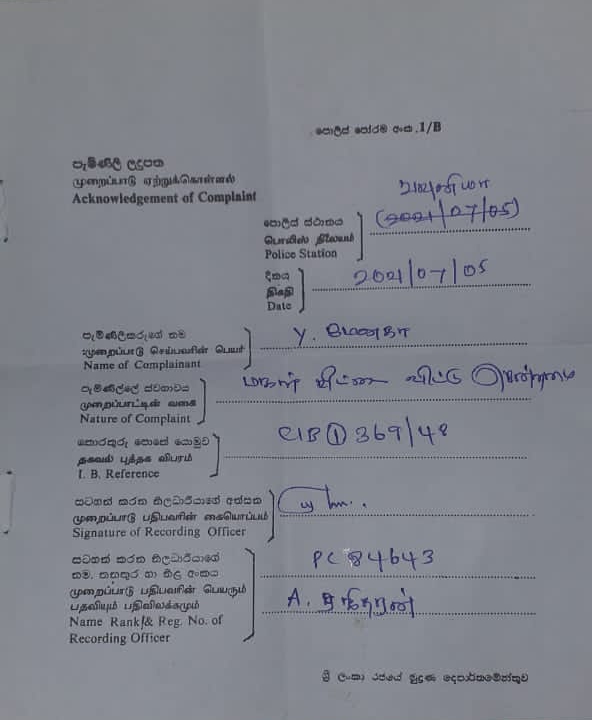 පොලිස් පෝරම අංක .1/B
පැමිණිලි ලදුපත
முறைப்பாடு ஏற்றுக்கொள்ளல்
Acknowledgement of Complaint
வவுனியா
පොලිස් ස්ථානය
(2021/07/05)
பொலிஸ் நிலையம்
Police Station
දිනය
2021/07/05
திகதி
Date
පැමිණිලිකරුගේ නම
Y. மேனகா
முறைப்பாடு செய்பவரின் பெயர்
Name of Complainant
පැමිණිල්ලේ ස්වභාවය
மகள் வீட்டை விட்டு
முறைப்பாட்டின் வகை
Nature of Complaint
තොරතුරු පොතේ යොමුව
CIB ① 369/48
தகவல் புத்தக விபரம்
I. B. Reference
සටහන් කරන නිලධාරියාගේ අත්සන
முறைப்பாடு பதிபவரின் கையொப்பம்
Signature of Recording Officer
සටහන් කරන නිලධාරියාගේ
PC 84643
නම, තනතුර හා නිල අංකය
முறைப்பாடு பதிபவரின் பெயரும்
A.
பதவியும் பதிவிலக்கமும்
Name Rank/& Reg. No. of
Recording Officer
ශ්‍රී ලංකා රජයේ මුද්‍රණ දෙපාර්තමේන්තුව